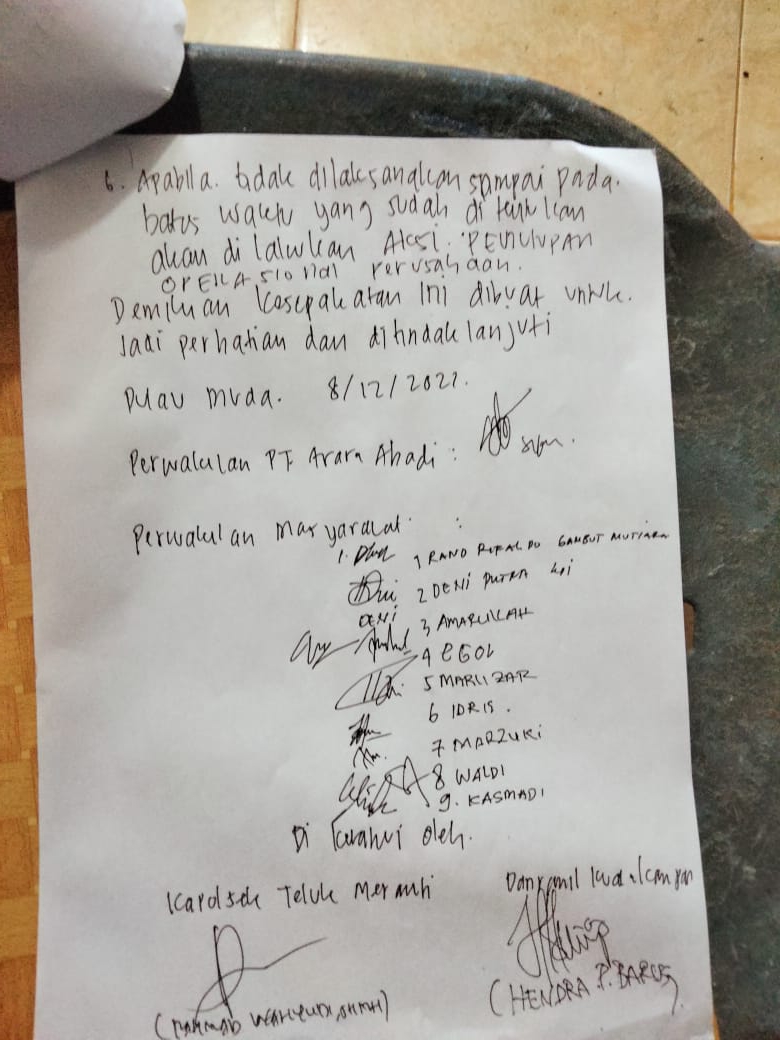 6. Apabila. tidak dilaksanakan sampai pada.
batas waktu yang sudah di tentukan
akan di lakukan Aksi. PENUTUPAN
OPERASIONAL Perusahaan.
Demikian kesepakatan ini dibuat untuk.
Jadi perhatian dan ditindak lanjuti
Pulau Muda. 8/12/2022.
Perwakilan PT. Arara Abadi :
Perwakilan Masyarakat :
1 RANO RIFALDO GAMBUT MUTIARA
2 DENI PUTRA
DENI
3 AMARULLAH
4 EGOL
5 MARLIZAR
6 IDRIS.
7 MARZUKI
8 WALDI
9. KASMADI
Di ketahui oleh.
Kapolsek Teluk Meranti
Danramil Kuala Kampar
(HENDRA P. BARUS)